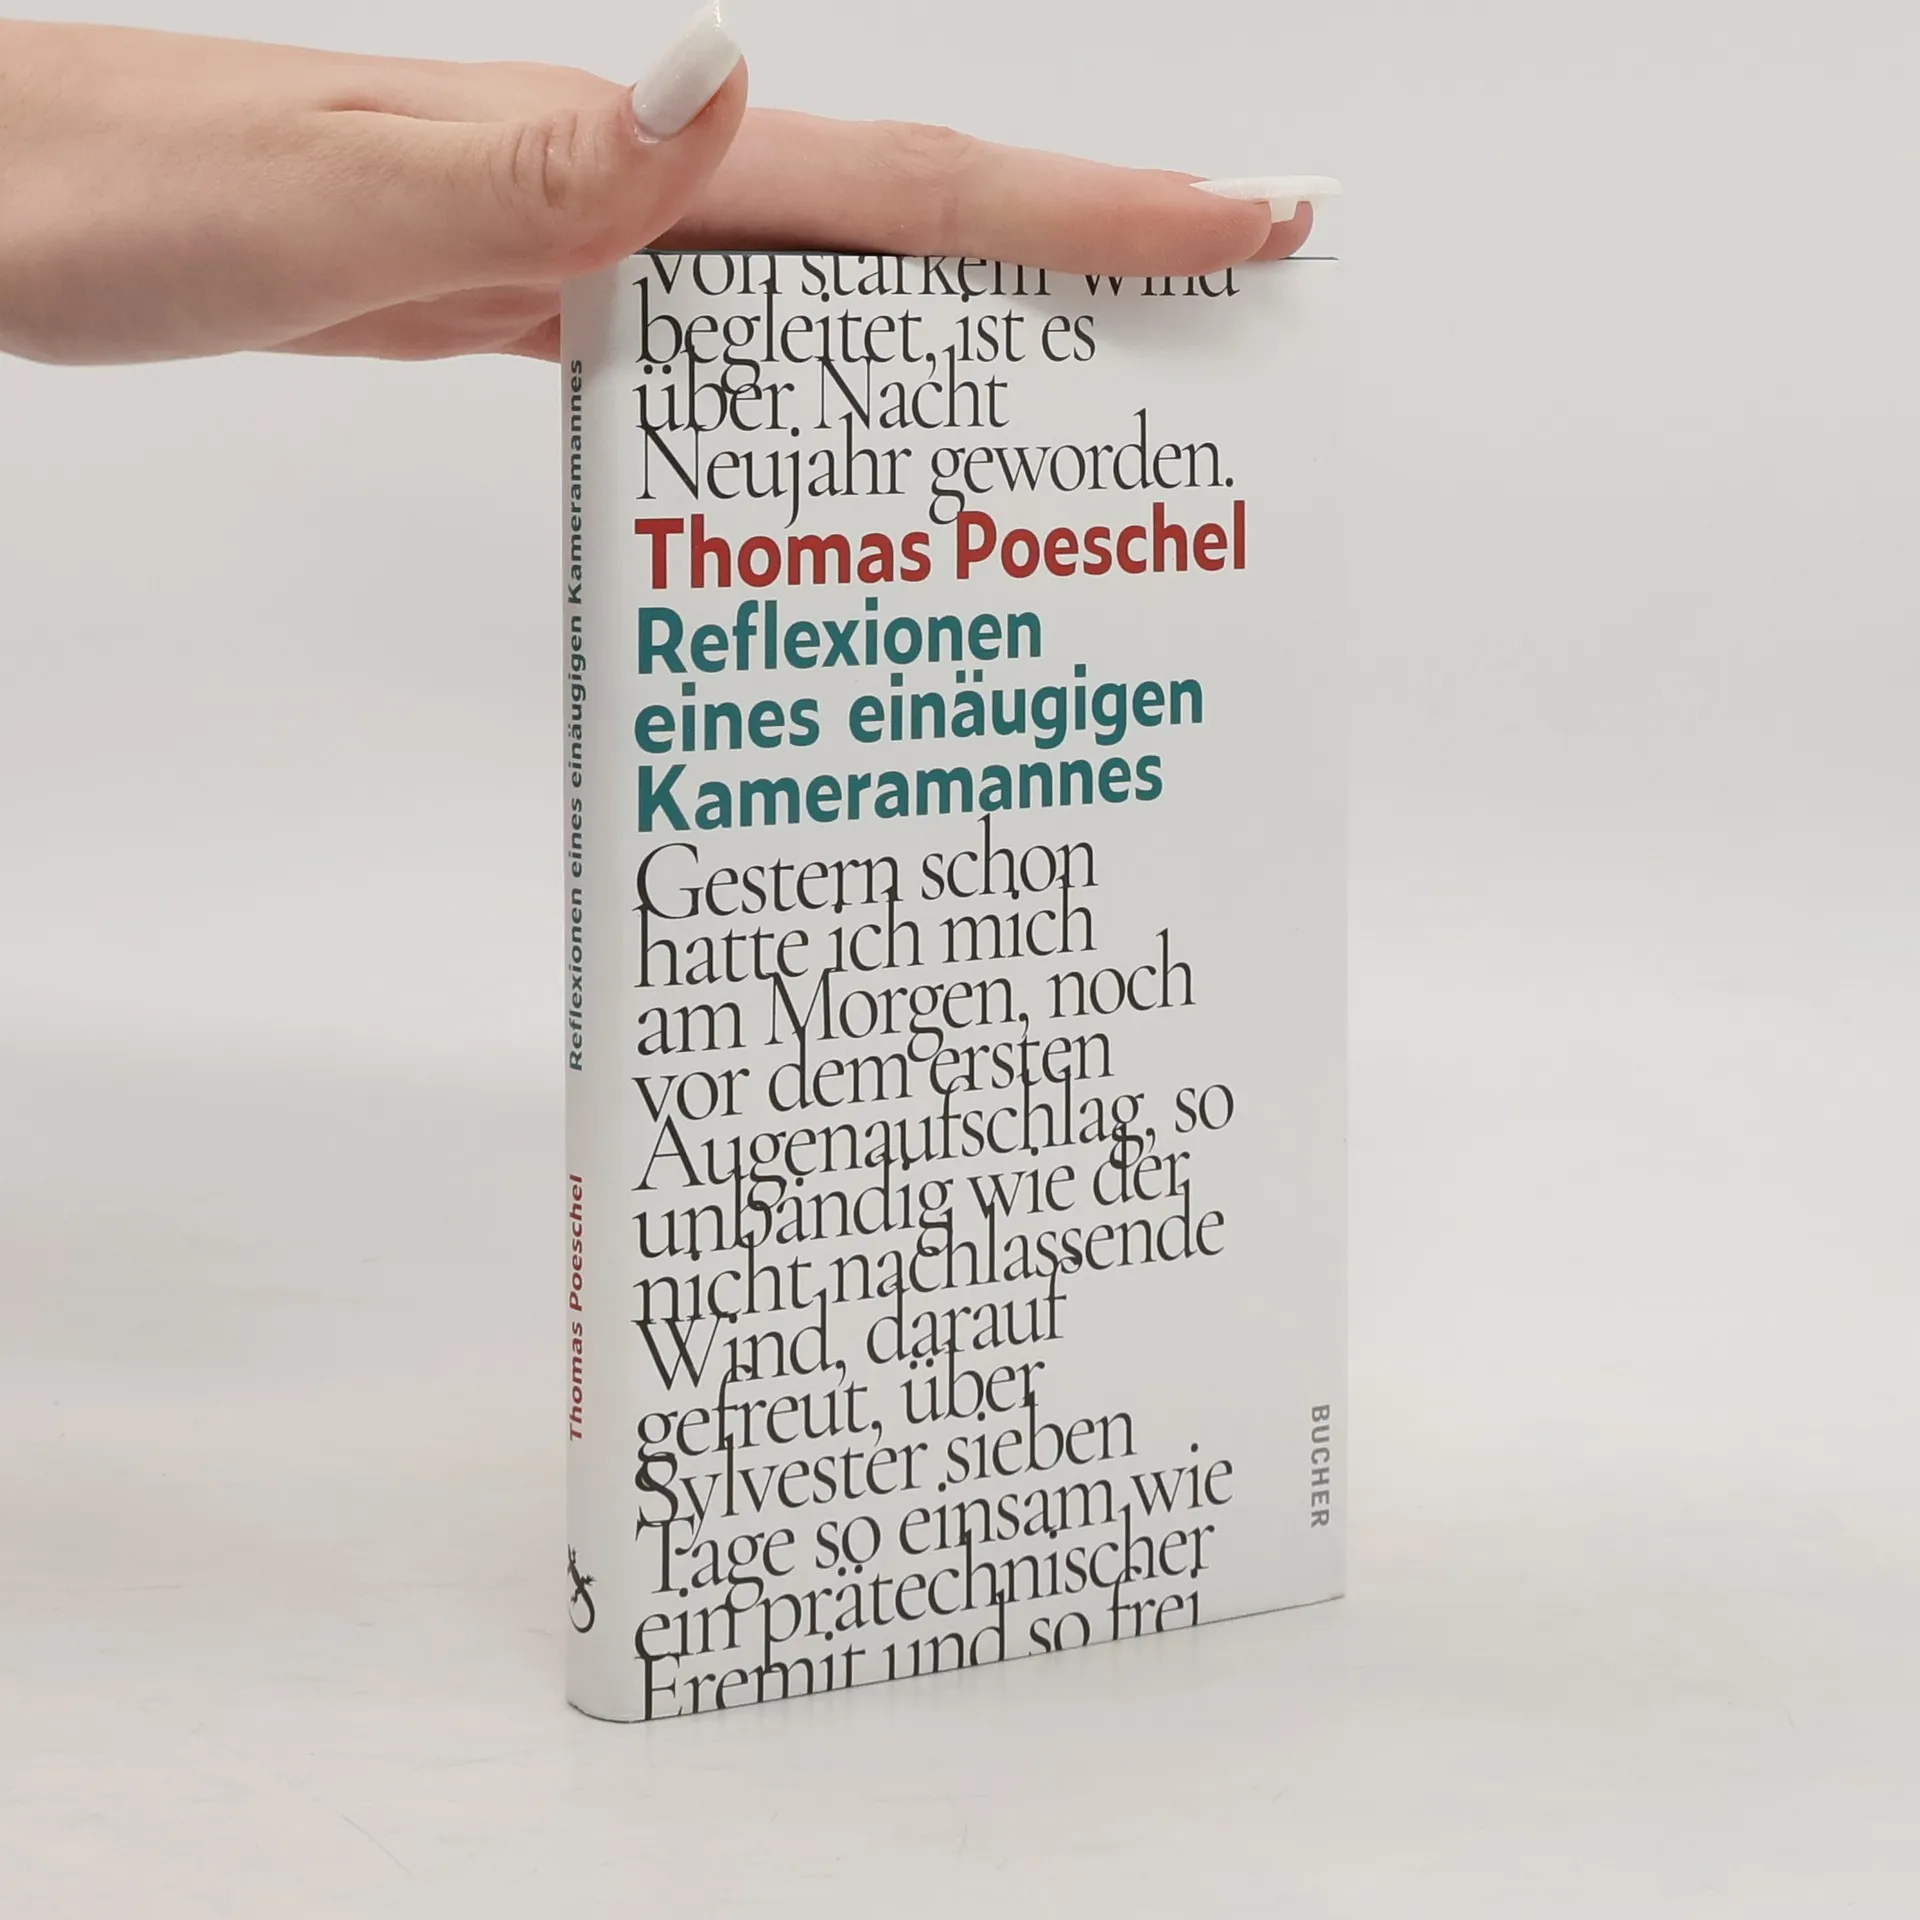 Von starkem Wind
begleitet, ist es
über Nacht
Neujahr geworden.
Thomas Poeschel
Reflexionen
eines einäugigen
Kameramannes
Gestern schon
hatte ich mich
am Morgen, noch
vor dem ersten
Augenaufschlag, so
unbändig wie der
nicht nachlassende
Wind, darauf
gefreut, über
Sylvester sieben
Tage so einsam wie
ein prätechnischer
Eremit und so frei
BUCHER
Thomas Poeschel Reflexionen eines einäugigen Kameramannes